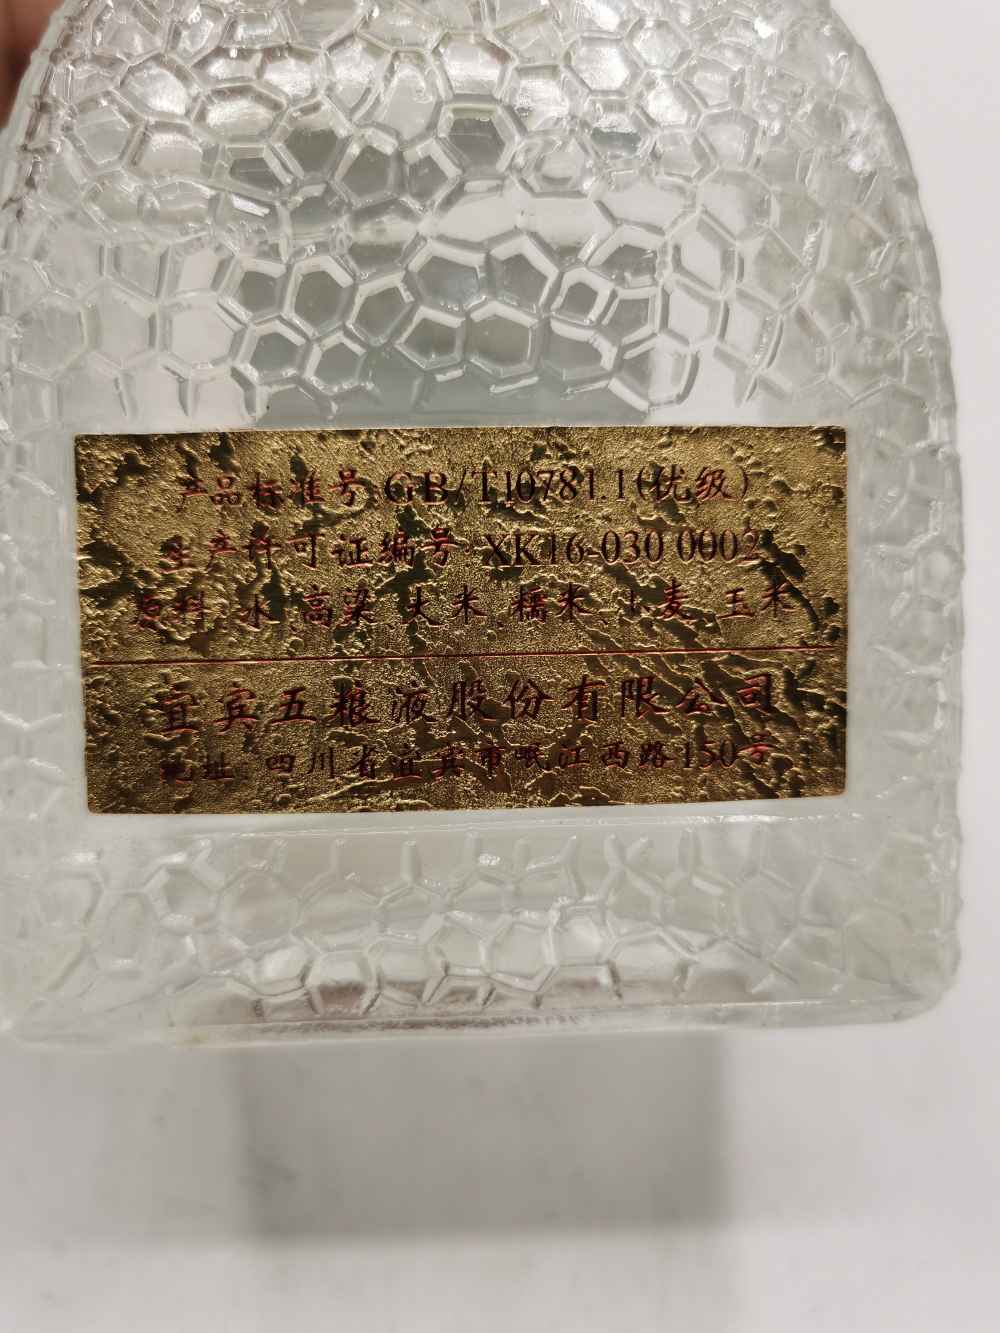 产品标准号:GB/T10781.1(优级)
生产许可证编号:XK16-030 0002
原料:水、高粱、大米、糯米、小麦、玉米
宜宾五粮液股份有限公司
地址:四川省宜宾市岷江西路150号